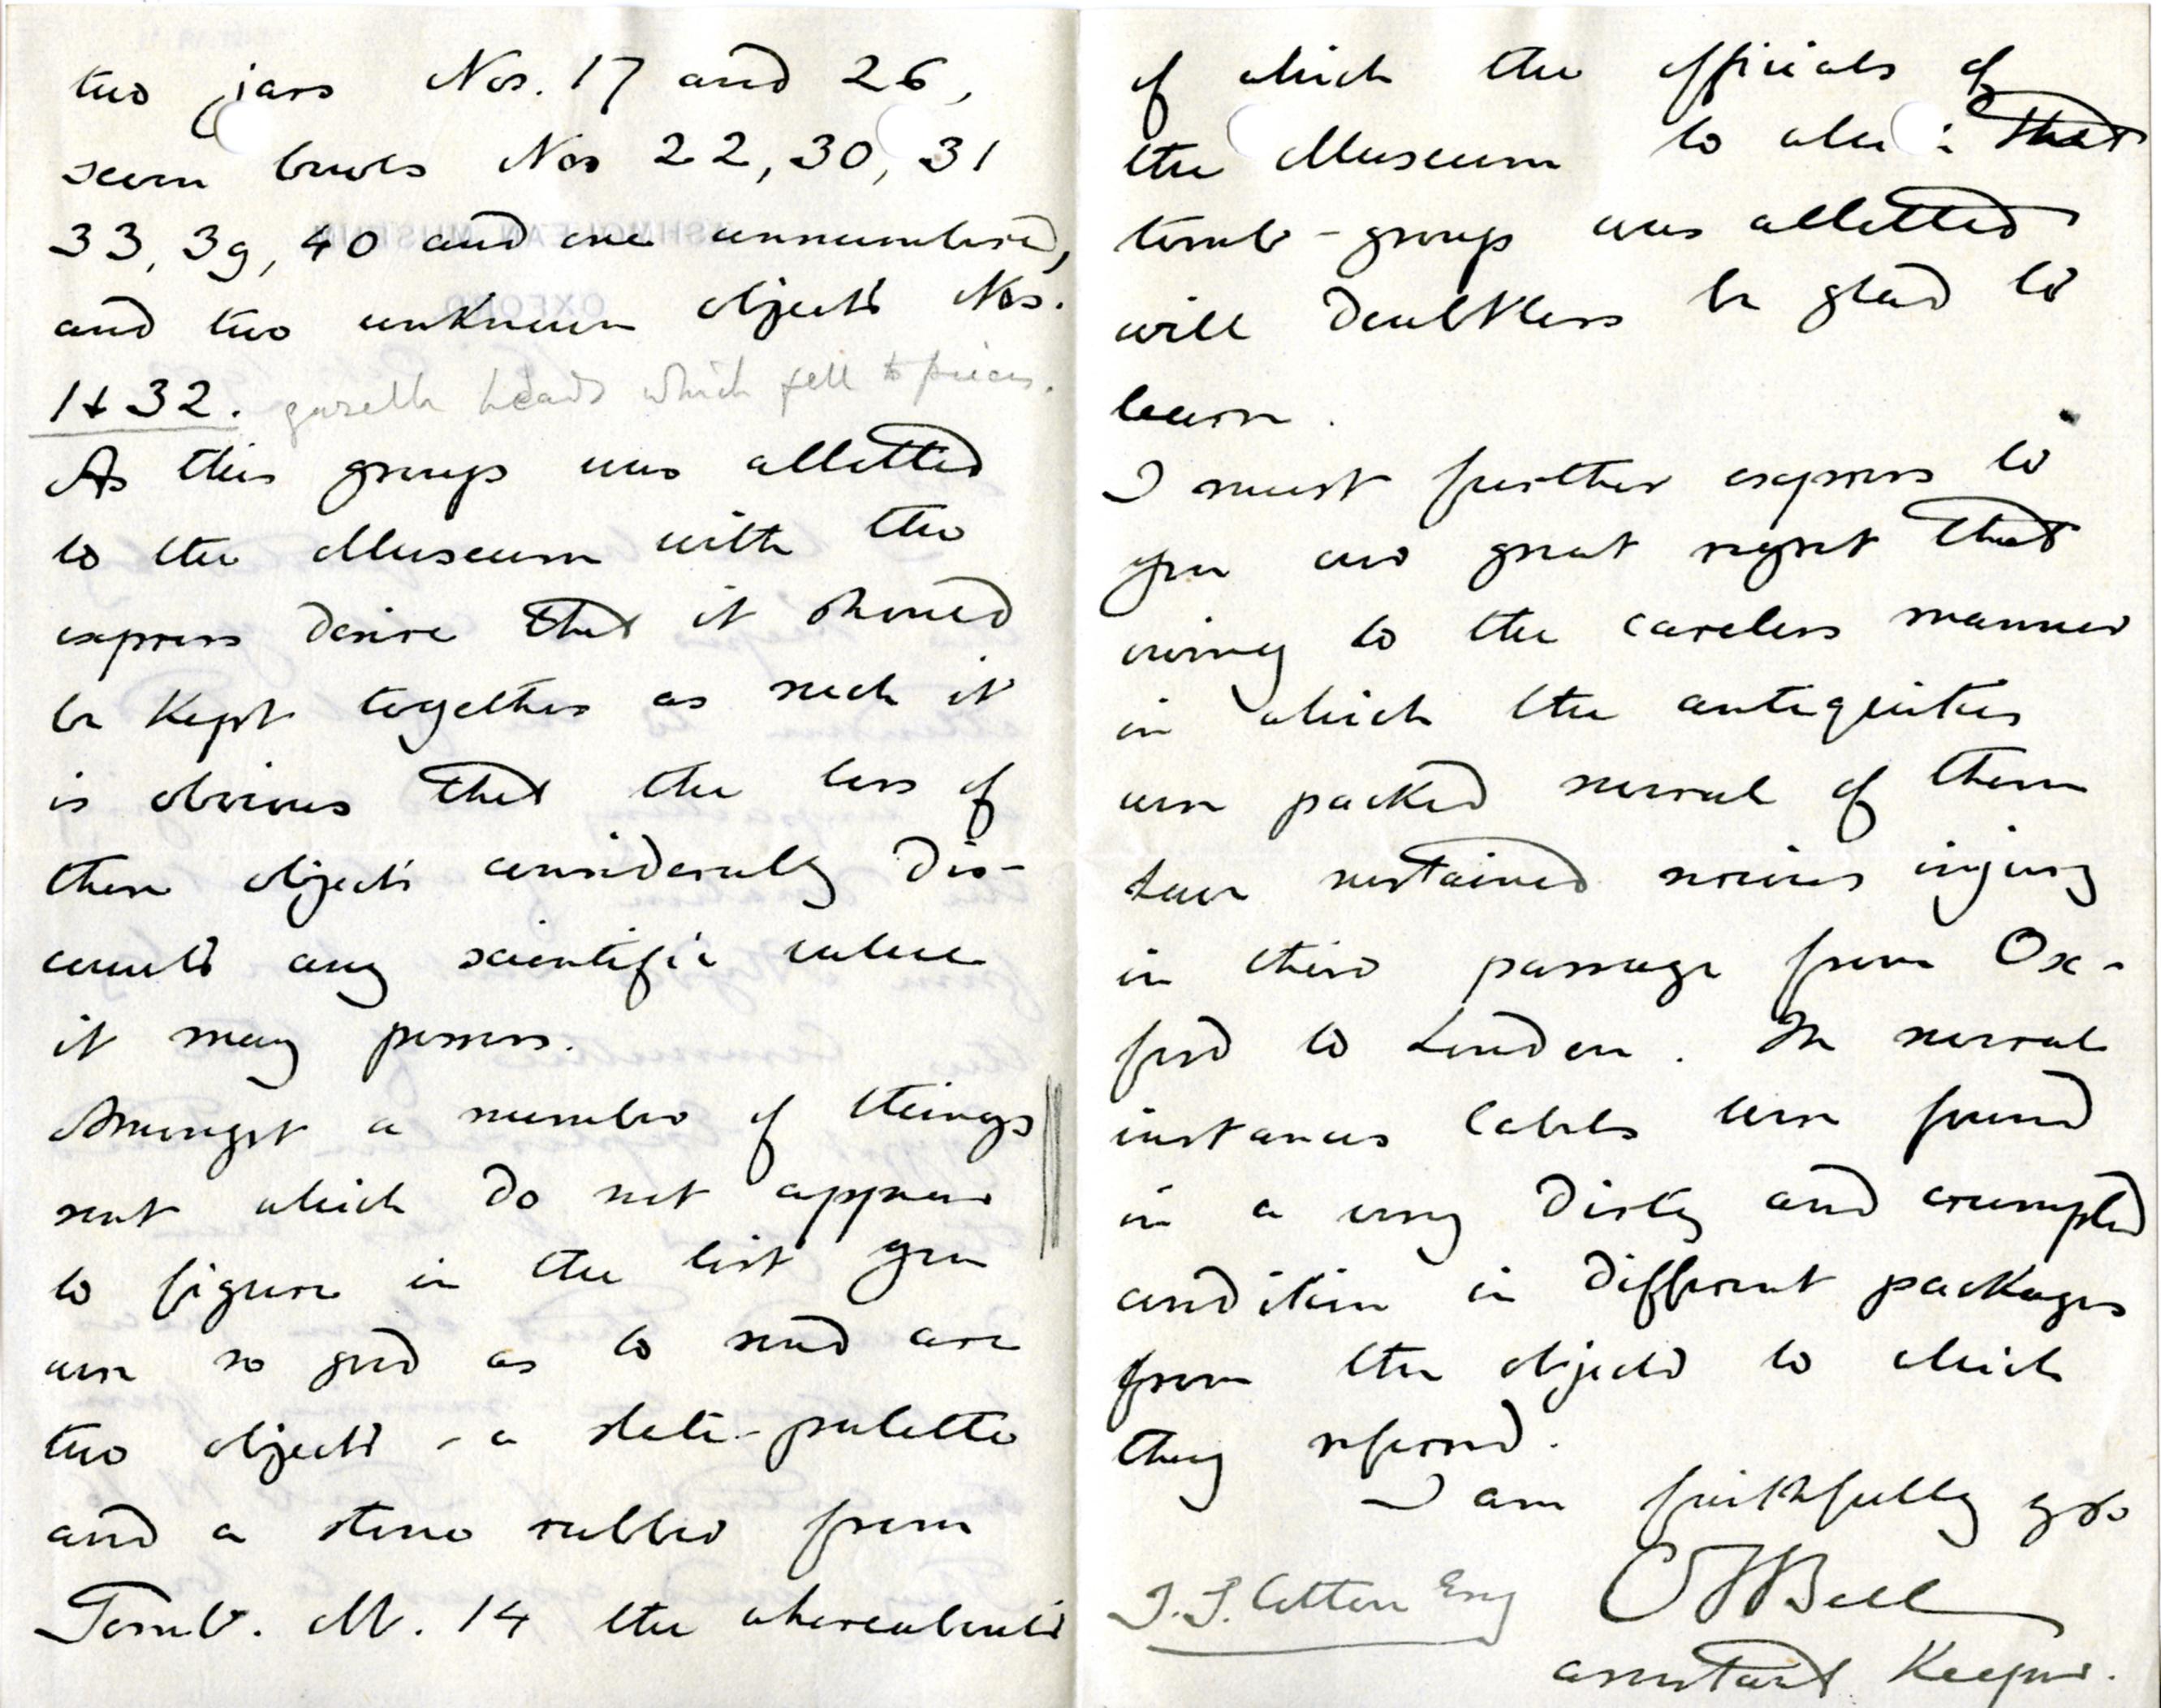 two jars Nos. 17 and 26,
seven bowls Nos 22, 30, 31
33, 39, 40 and one unnumbered,
and two unknown objects Nos.
1 & 32. gazelle heads which fell to pieces.
As this group was allotted
to the Museum with the
express desire that it should
be kept together as such it
is obvious that the loss of
these objects considerably dis-
counts any scientific value
it may possess.
Amongst a number of things
sent which do not appear
to figure in the list you
were so good as to send are
two objects - a slate-palette
and a stone rubber from
Tomb. M. 14 the whereabouts
of which the officials of
the Museum to that
tomb-group was allotted
will doubtless be glad to
learn.
I must further express to
you our great regret that
owing to the careless manner
in which the antiquities
were packed several of them
have sustained serious injury
in their passage from Ox-
ford to London. In several
instances labels were found
in a very dirty and crumpled
condition in different packages
from the objects to which
they referred.
I am faithfully yrs
C F Bell
J. S. Cotton Esq
assistant Keeper.
ASHMOLEAN MUSEUM
OXFORD